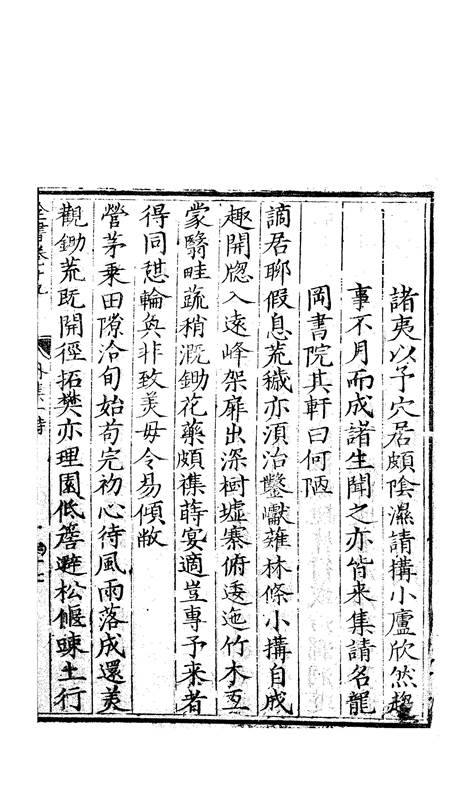 諸夷以予穴居頗陰濕請搆小廬欣然趨
事不月而成諸生聞之亦皆来集請名龍
岡書院其軒曰何陋
謫居聊假息荒穢亦湏治鑿巘薙林條小搆自成
趣開牕入遠峰架扉出深樹墟寨俯逶迤竹木互
蒙翳畦蔬稍溉鋤花藥頗襍蒔宴適豈專予来者
得同憇輪奐非致羙毋令易傾敝
營茅乗田隙洽旬始苟完初心待風雨落成還羙
觀鋤荒既開徑拓樊亦理園低簷避松偃疎土行